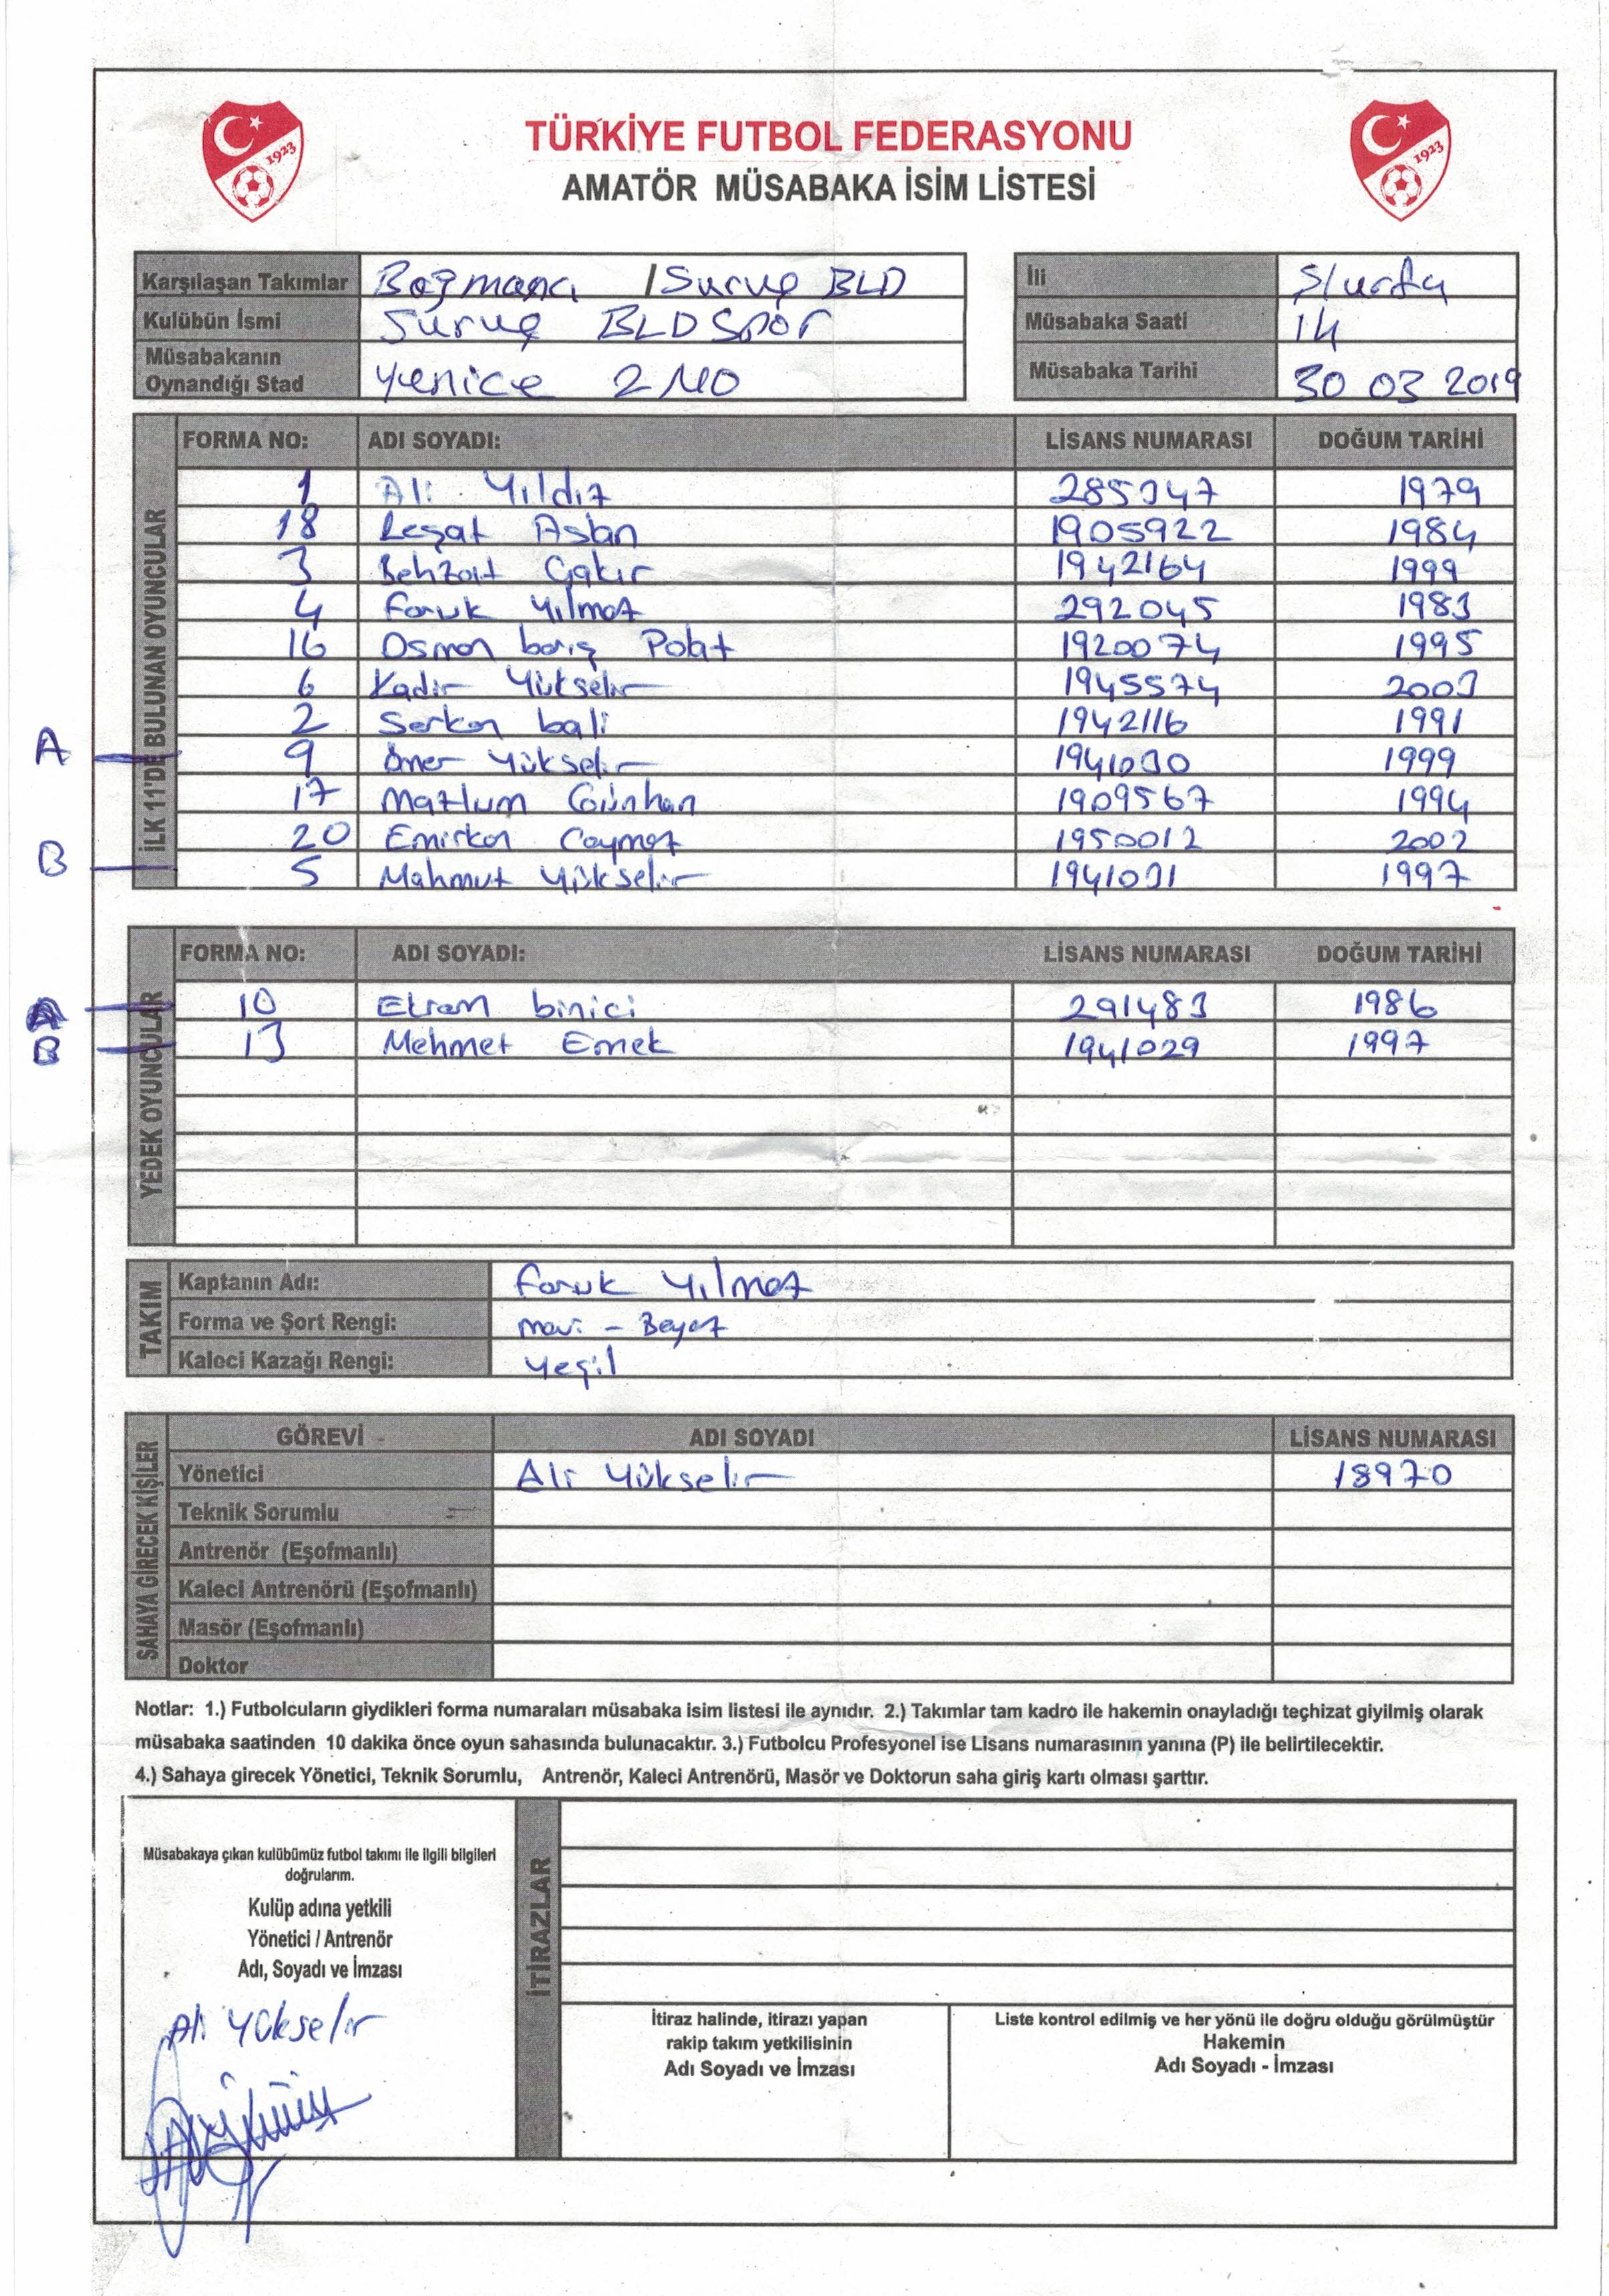 1923
1923
TÜRKİYE FUTBOL FEDERASYONU
AMATÖR MÜSABAKA İSİM LİSTESİ
Karşılaşan Takımlar Boğmaxcı / Suruç BLD
Kulübün İsmi Suruç BLD Spor
Müsabakanın Oynandığı Stad yenice 2 NO
İli Ş/urfa
Müsabaka Saati 14
Müsabaka Tarihi 30 03 2019
İLK 11'DE BULUNAN OYUNCULAR
FORMA NO: ADI SOYADI: LİSANS NUMARASI DOĞUM TARİHİ
1 Ali Yıldız 285347 1979
18 Reşat Aslan 1905922 1984
3 Behzat Çakır 1942164 1999
4 Faruk Yılmaz 292045 1983
16 Osman barış Polat 1920074 1995
6 Kadir Yükselir 1945574 2003
2 Serkan bali 1942116 1991
A 9 Ömer Yükselir 1941030 1999
17 Mazlum Günhan 1909567 1994
20 Emirkan Caymaz 1950012 2002
B 5 Mahmut Yükselir 1941031 1997
YEDEK OYUNCULAR
FORMA NO: ADI SOYADI: LİSANS NUMARASI DOĞUM TARİHİ
A 10 Ekrem binici 291483 1986
B 13 Mehmet Emek 1941029 1997
TAKIM
Kaptanın Adı: Faruk Yılmaz
Forma ve Şort Rengi: mavi - Beyaz
Kaleci Kazağı Rengi: yeşil
SAHAYA GİRECEK KİŞİLER
GÖREVİ ADI SOYADI LİSANS NUMARASI
Yönetici Ali Yükselir 18970
Teknik Sorumlu
Antrenör (Eşofmanlı)
Kaleci Antrenörü (Eşofmanlı)
Masör (Eşofmanlı)
Doktor
Notlar: 1.) Futbolcuların giydikleri forma numaraları müsabaka isim listesi ile aynıdır. 2.) Takımlar tam kadro ile hakemin onayladığı teçhizat giyilmiş olarak
müsabaka saatinden 10 dakika önce oyun sahasında bulunacaktır. 3.) Futbolcu Profesyonel ise Lisans numarasının yanına (P) ile belirtilecektir.
4.) Sahaya girecek Yönetici, Teknik Sorumlu, Antrenör, Kaleci Antrenörü, Masör ve Doktorun saha giriş kartı olması şarttır.
Müsabakaya çıkan kulübümüz futbol takımı ile ilgili bilgileri
doğrularım.
Kulüp adına yetkili
Yönetici / Antrenör
Adı, Soyadı ve İmzası
Ali Yükselir
İTİRAZLAR
İtiraz halinde, itirazı yapan
rakip takım yetkilisinin
Adı Soyadı ve İmzası
Liste kontrol edilmiş ve her yönü ile doğru olduğu görülmüştür
Hakemin
Adı Soyadı - İmzası